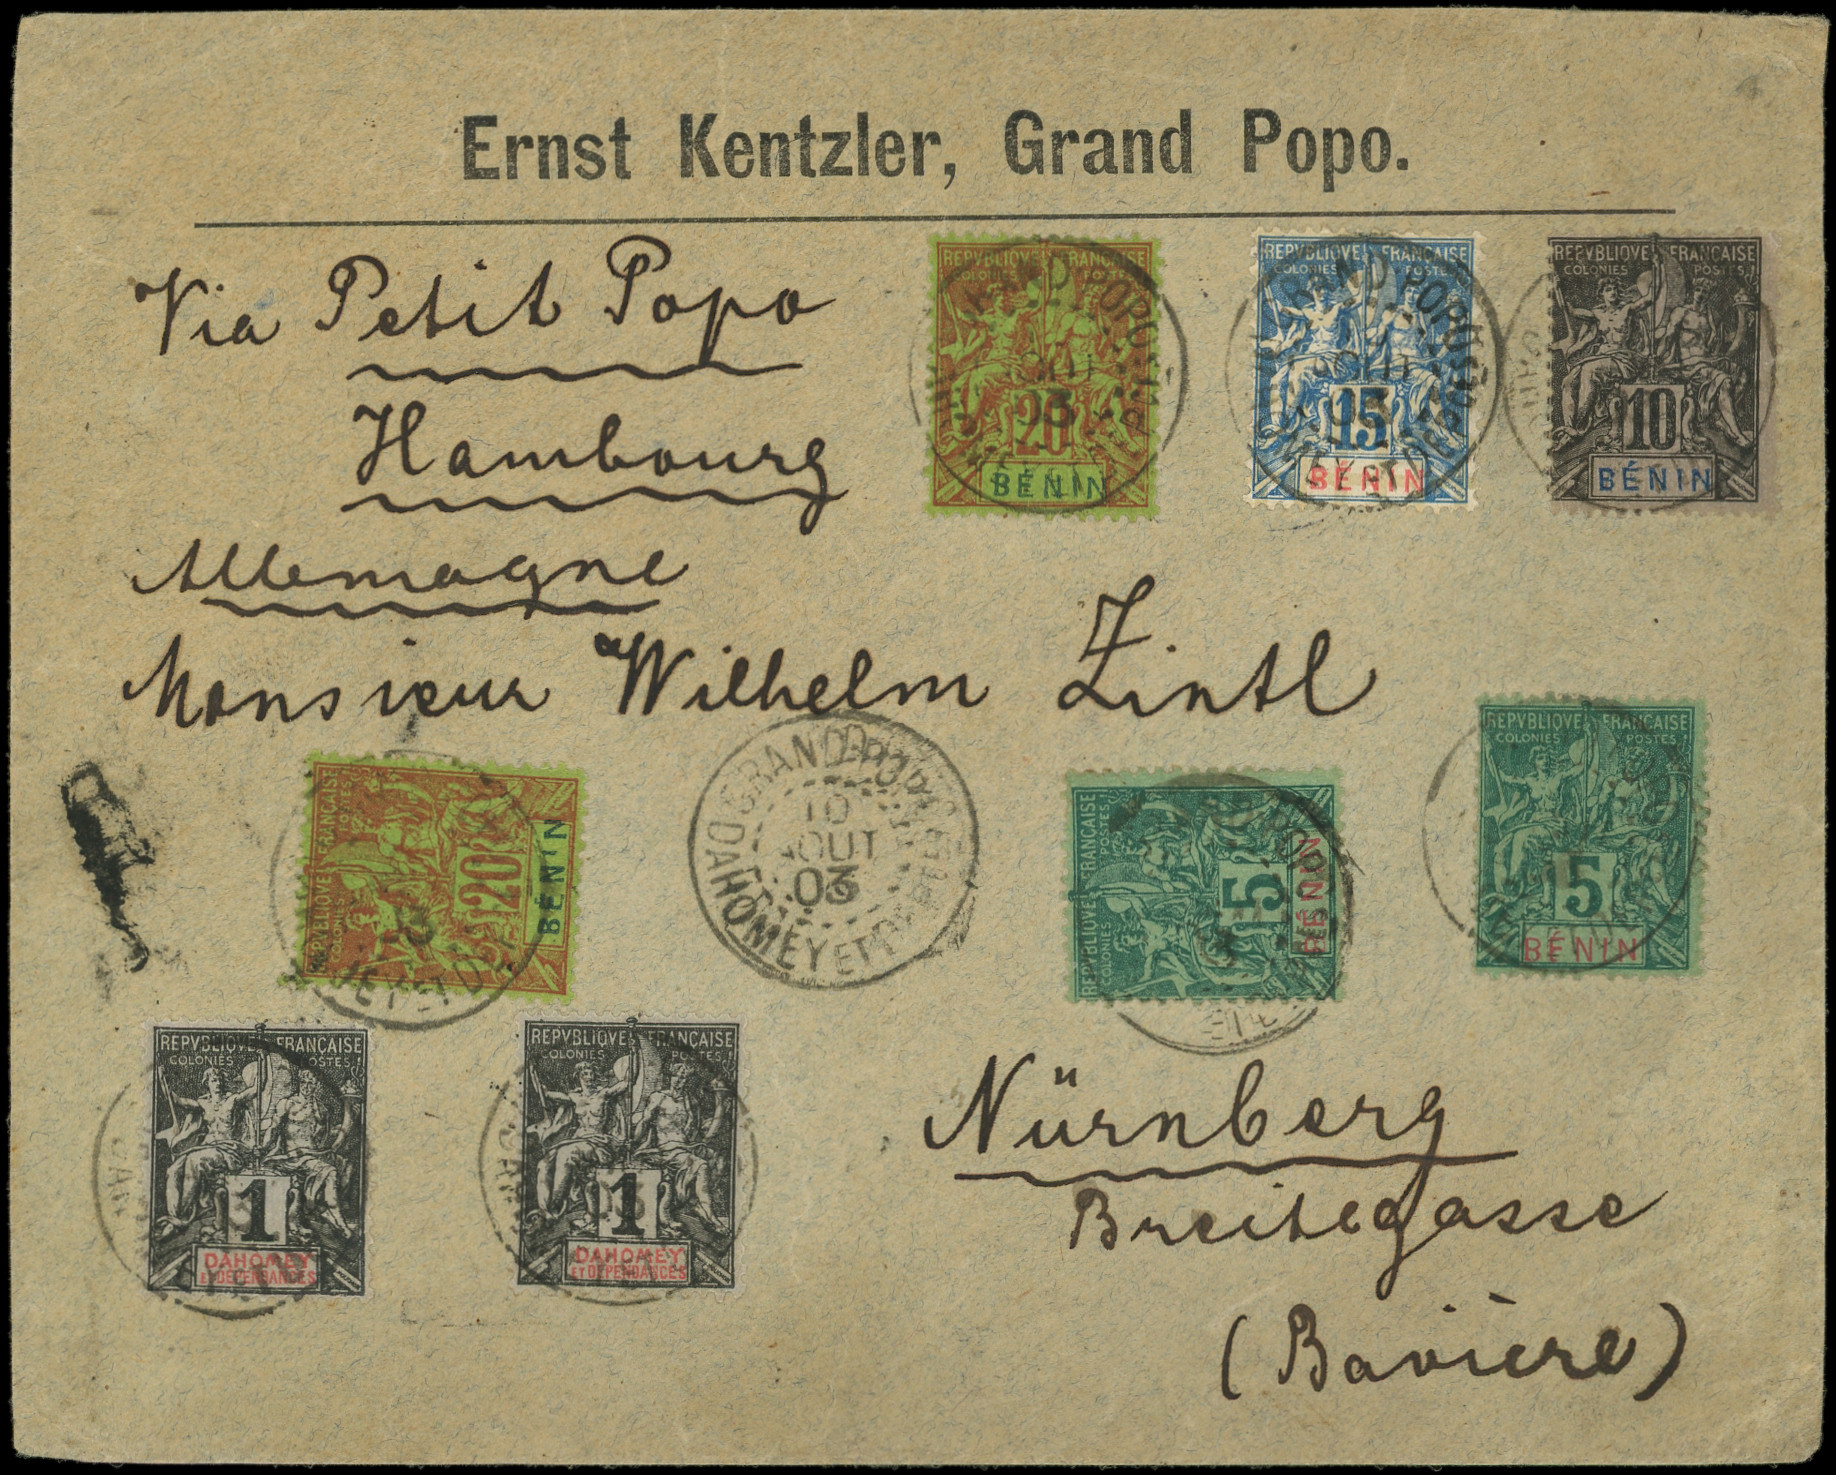 Ernst Kentzler, Grand Popo.
Via Petit Popo
Hambourg
Allemagne
Monsieur Wilhelm Zintl
Nürnberg
Breitegasse
(Bavière)
REPVBLIQVE FRANÇAISE
COLONIES POSTES
20
BÉNIN
REPVBLIQVE FRANÇAISE
COLONIES POSTES
15
BÉNIN
REPVBLIQVE FRANÇAISE
COLONIES POSTES
10
BÉNIN
REPVBLIQVE FRANÇAISE
COLONIES POSTES
20
BÉNIN
GRAND POPO
10
AOUT
03
DAHOMEY ET DEP
REPVBLIQVE FRANÇAISE
COLONIES POSTES
5
BÉNIN
REPVBLIQVE FRANÇAISE
COLONIES POSTES
5
BÉNIN
REPVBLIQVE FRANÇAISE
COLONIES POSTES
1
DAHOMEY
ET DÉPENDANCES
REPVBLIQVE FRANÇAISE
COLONIES POSTES
1
DAHOMEY
ET DÉPENDANCES